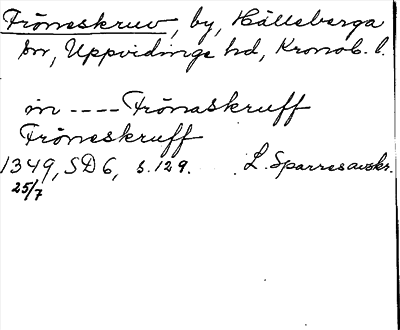 Fröneskruv, by, Hälleberga
sn, Uppvidinge hd, Kronob. l.
in ---- Frönaskruff
Fröneskruff
1349, SD 6, s. 129. L. Sparres avskr.
25/7